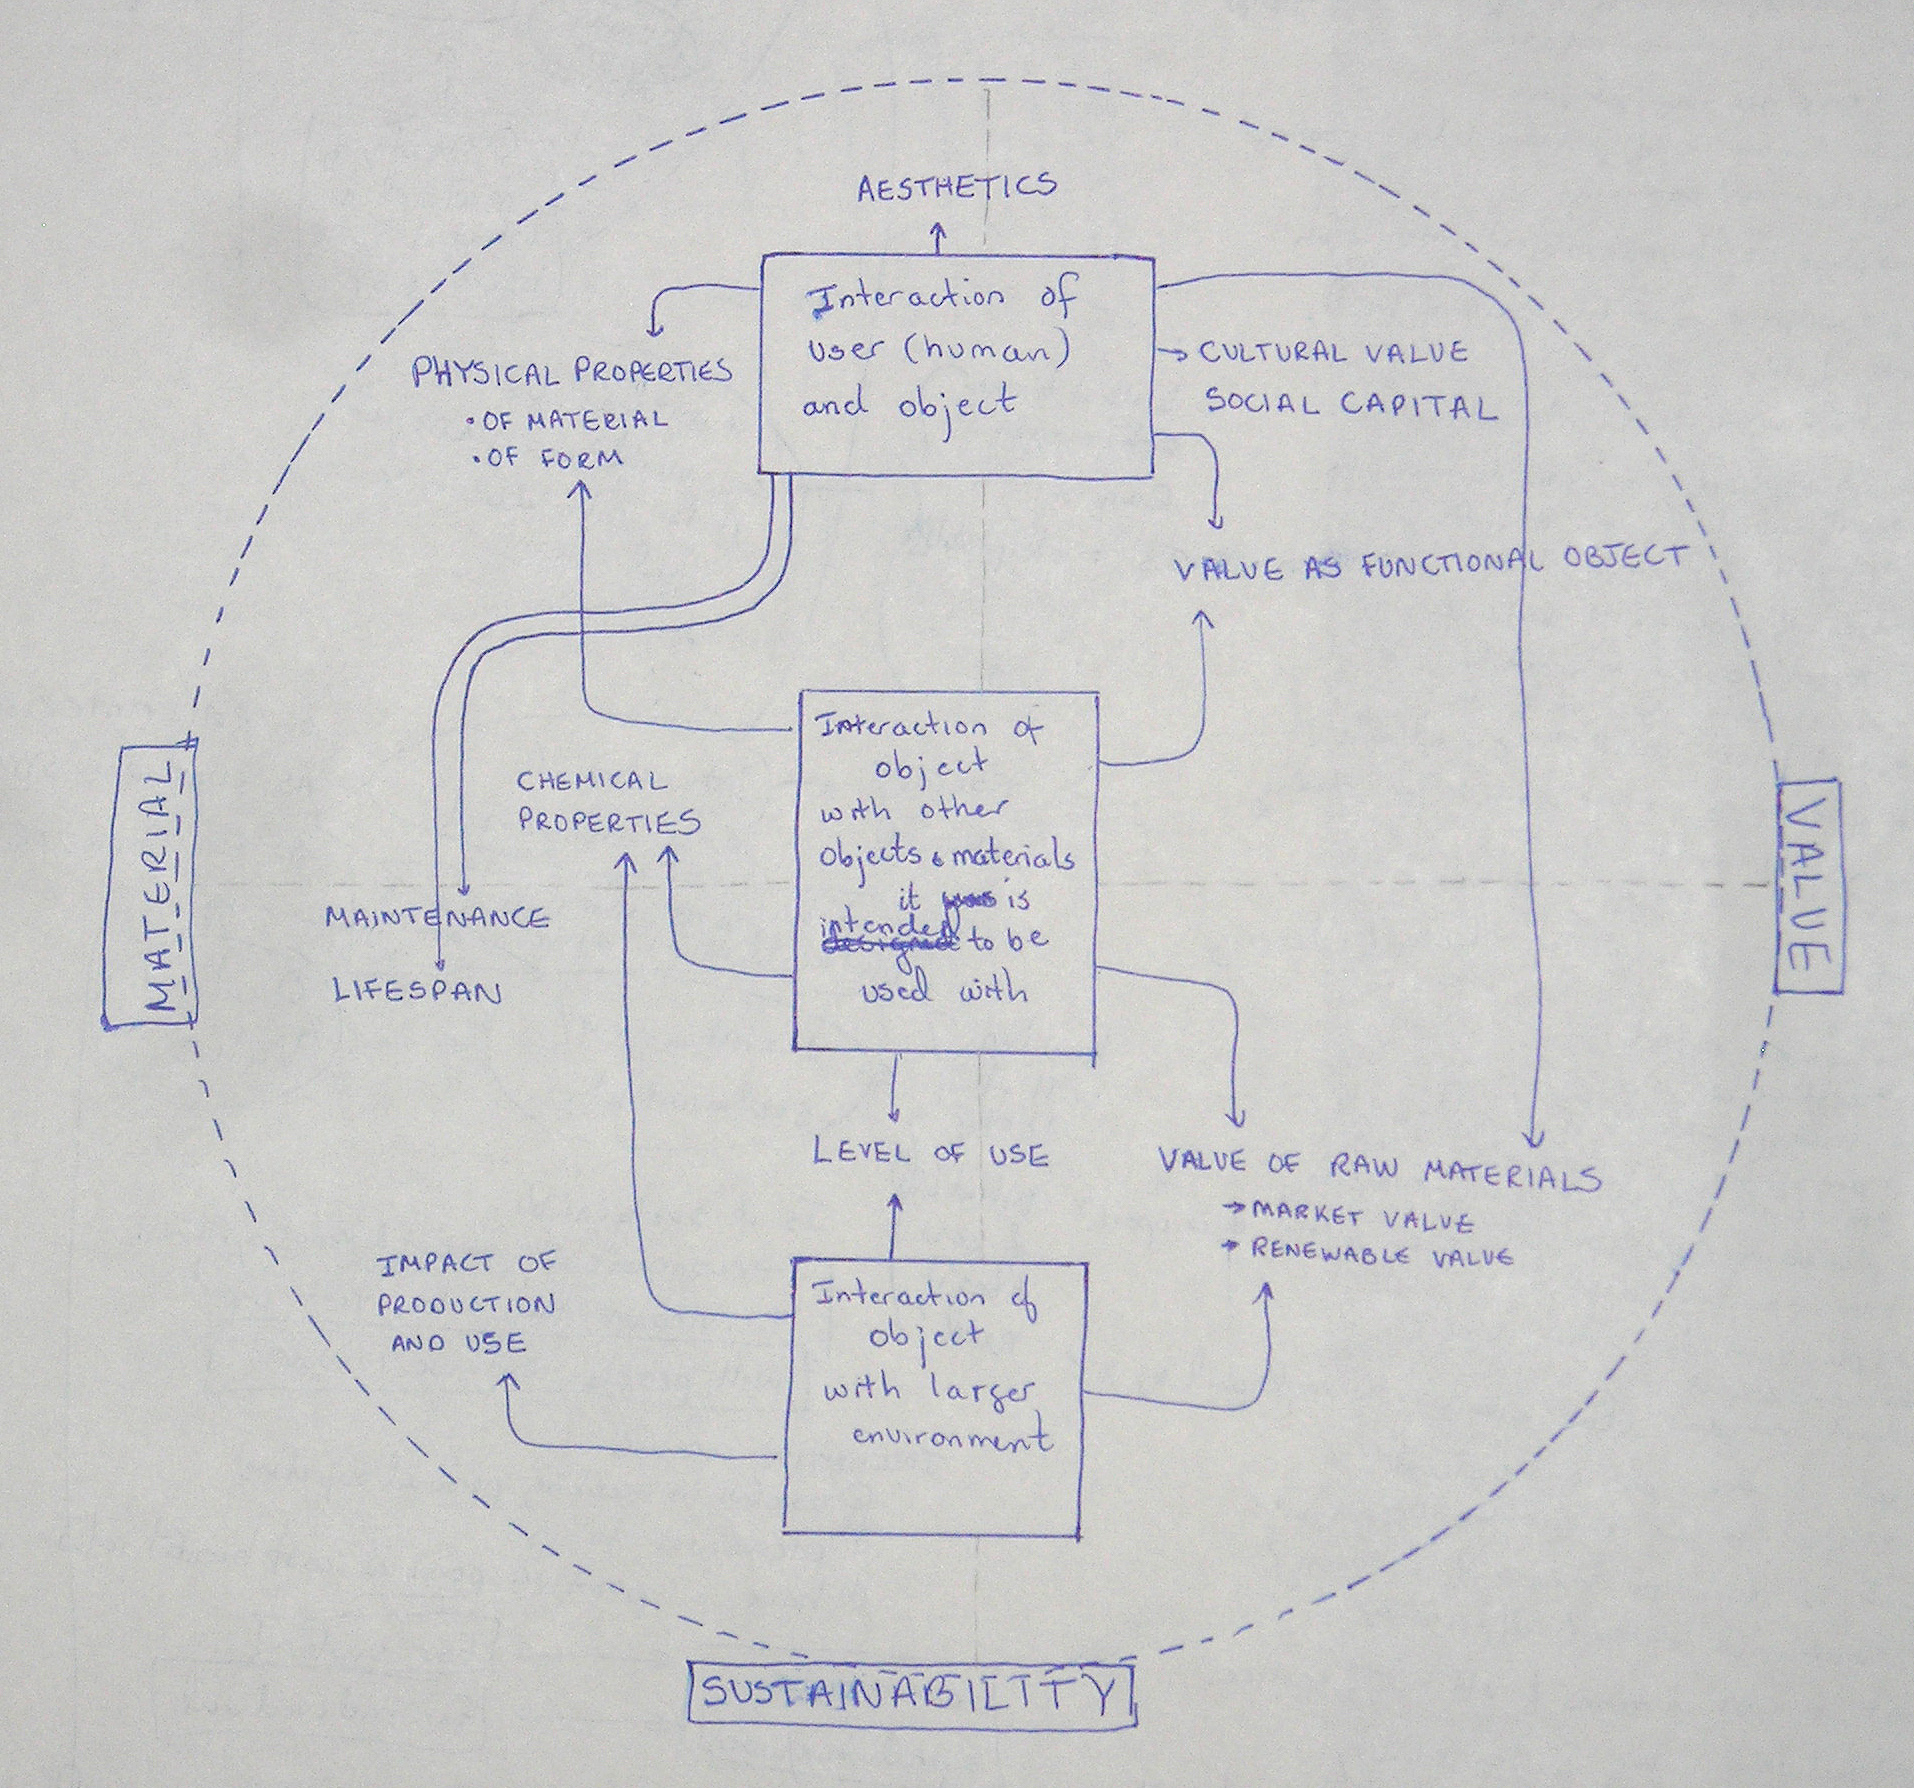 AESTHETICS
Interaction of
user (human)
and object
PHYSICAL PROPERTIES
• OF MATERIAL
• OF FORM
→ CULTURAL VALUE
SOCIAL CAPITAL
VALUE AS FUNCTIONAL OBJECT
Interaction of
object
with other
objects & materials
it was is
intended
designed to be
used with
CHEMICAL
PROPERTIES
MAINTENANCE
LIFESPAN
MATERIAL
VALUE
LEVEL OF USE
VALUE OF RAW MATERIALS
→ MARKET VALUE
→ RENEWABLE VALUE
IMPACT OF
PRODUCTION
AND USE
Interaction of
object
with larger
environment
SUSTAINABILITY